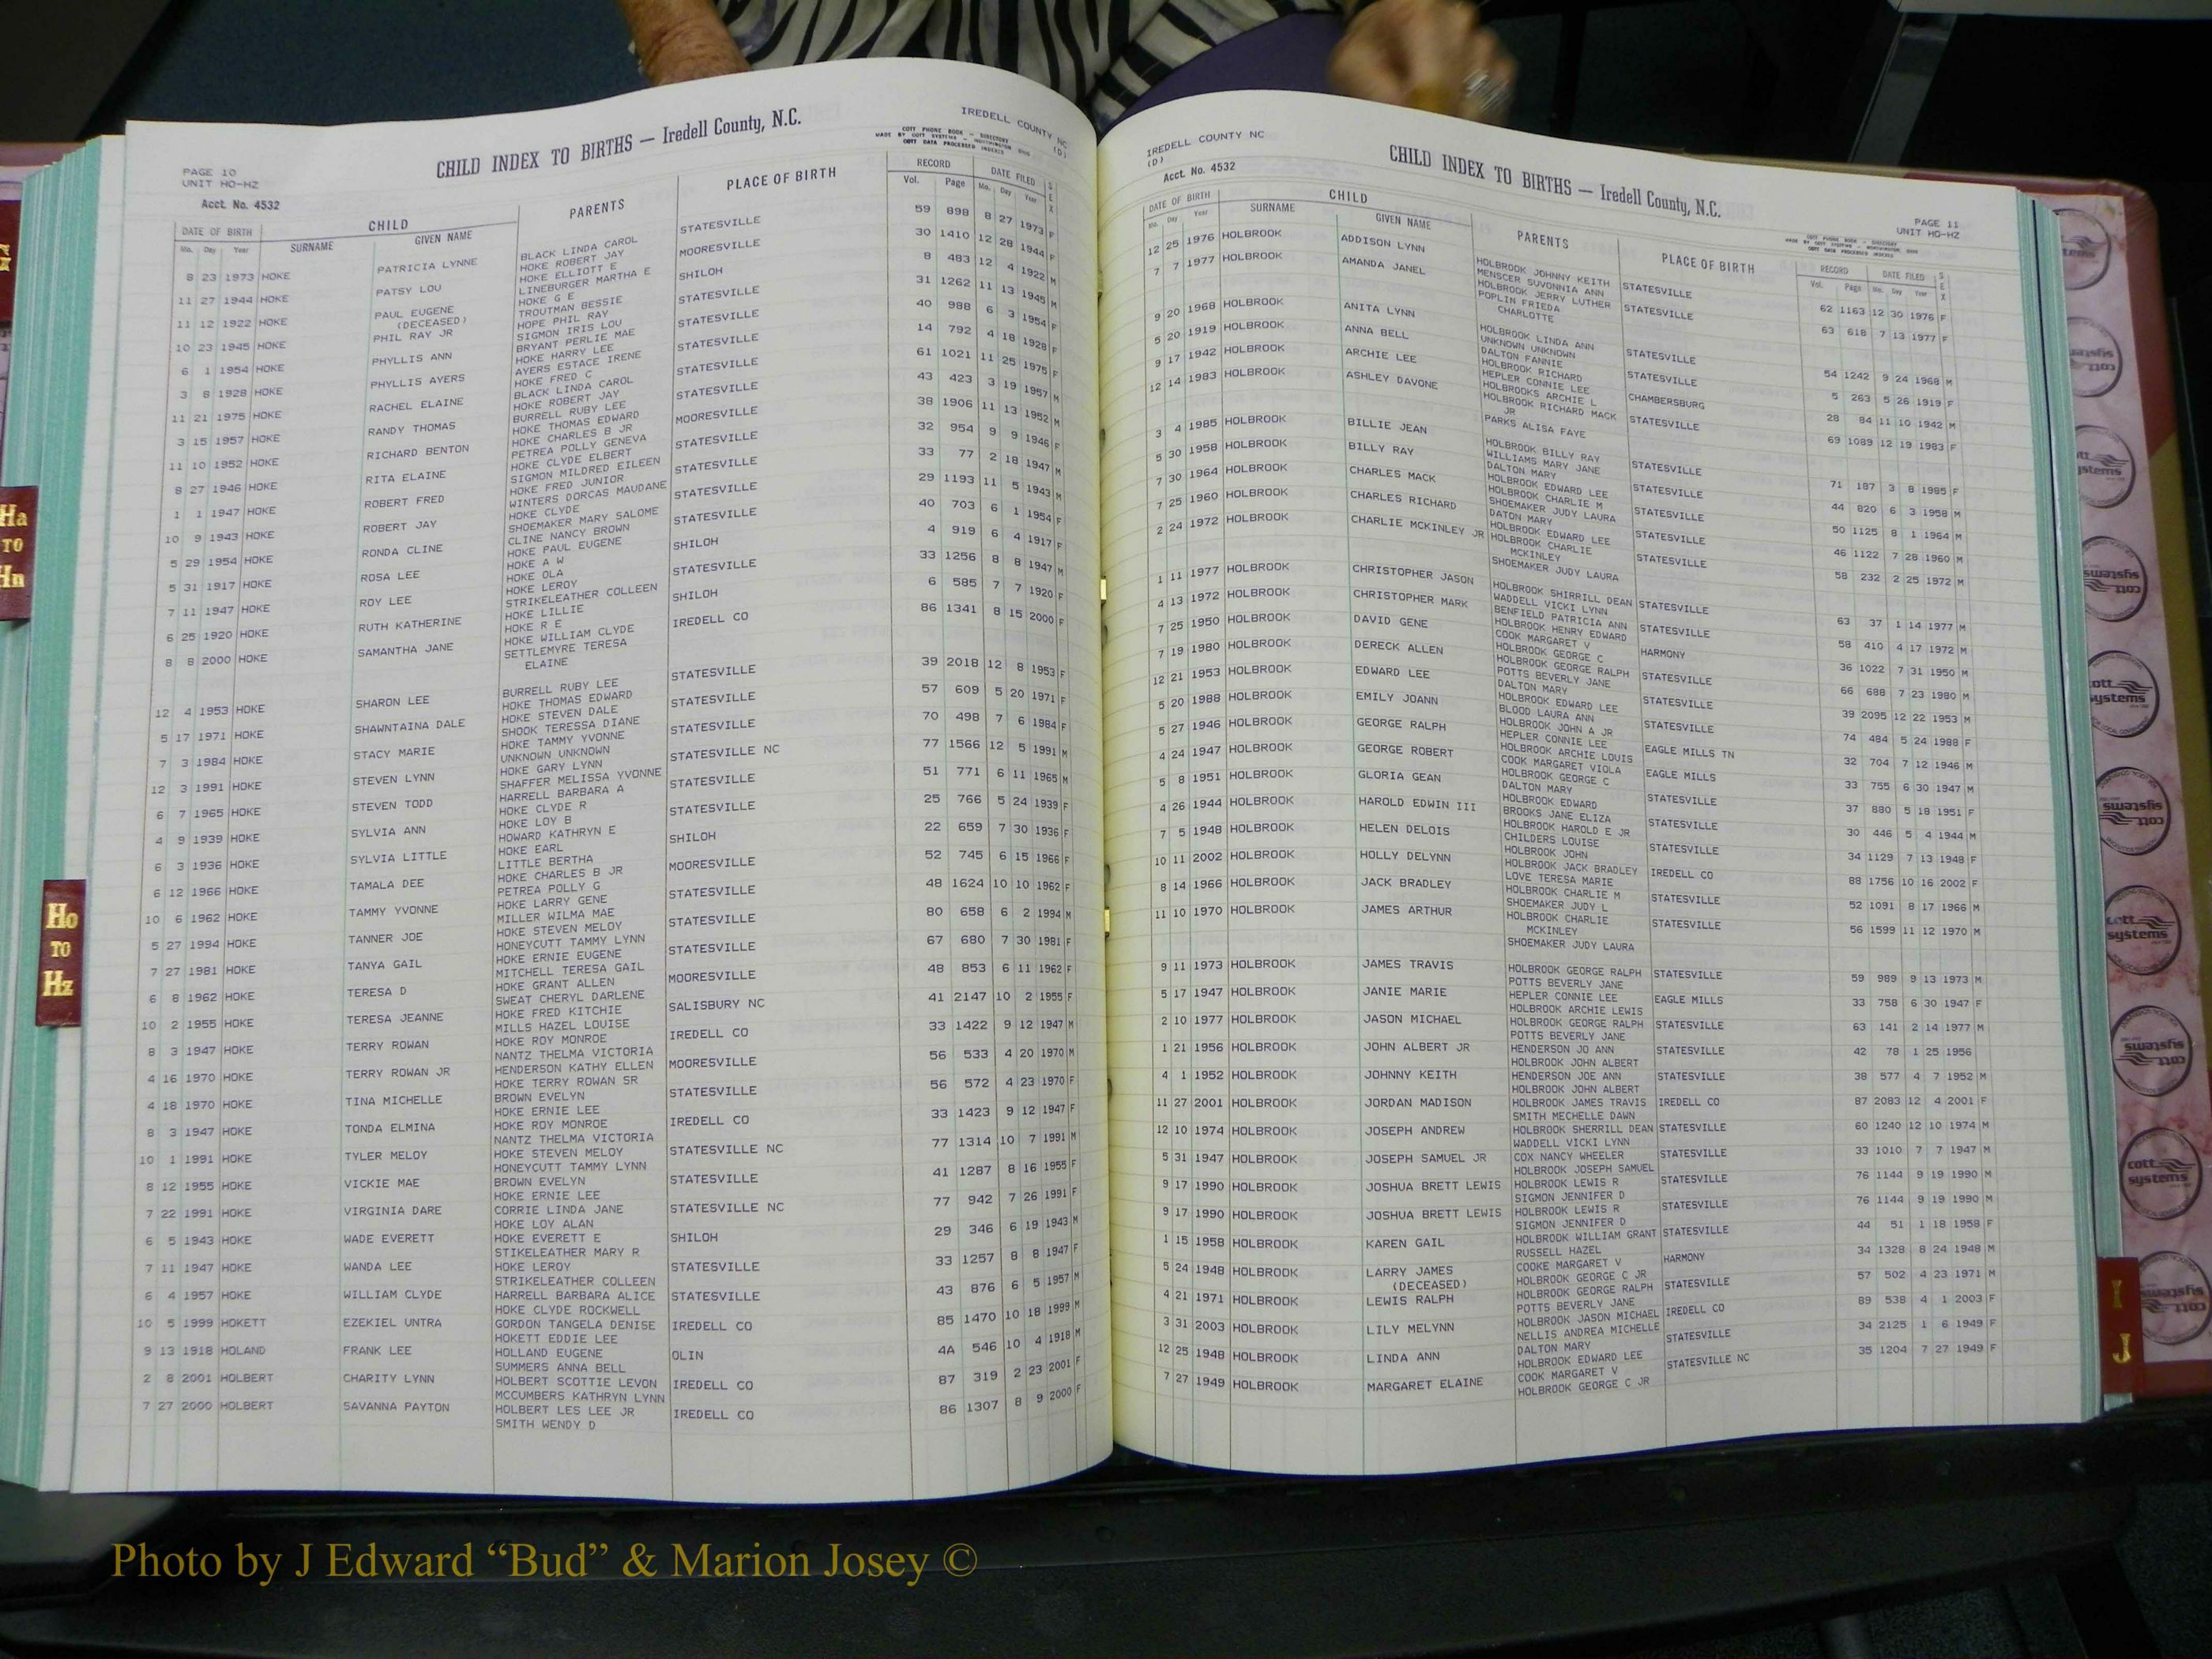 IREDELL COUNTY NC
(D)
CHILD INDEX TO BIRTHS — Iredell County, N.C.
COTT PHONE BOOK - DIRECTORY
COTT DATA PROCESSED INDEXES
PAGE 10
UNIT HO-HZ
Acct. No. 4532
DATE OF BIRTH CHILD PARENTS PLACE OF BIRTH RECORD DATE FILED SEX
Mo. Day Year SURNAME GIVEN NAME Vol. Page Mo. Day Year
8 23 1973 HOKE PATRICIA LYNNE BLACK LINDA CAROL STATESVILLE 59 898 8 27 1973 F
HOKE ROBERT JAY
11 27 1944 HOKE PATSY LOU HOKE ELLIOTT E MOORESVILLE 30 1410 12 28 1944 F
LINEBURGER MARTHA E
11 12 1922 HOKE PAUL EUGENE HOKE G E SHILOH 8 483 12 4 1922 M
(DECEASED) TROUTMAN BESSIE
10 23 1945 HOKE PHIL RAY JR HOPE PHIL RAY STATESVILLE 31 1262 11 13 1945 M
SIGMON IRIS LOU
6 1 1954 HOKE PHYLLIS ANN BRYANT PERLIE MAE STATESVILLE 40 988 6 3 1954 F
HOKE HARRY LEE
3 8 1928 HOKE PHYLLIS AYERS AYERS ESTACE IRENE STATESVILLE 14 792 4 18 1928 F
HOKE FRED C
11 21 1975 HOKE RACHEL ELAINE BLACK LINDA CAROL STATESVILLE 61 1021 11 25 1975 F
HOKE ROBERT JAY
3 15 1957 HOKE RANDY THOMAS BURRELL RUBY LEE STATESVILLE 43 423 3 19 1957 M
HOKE THOMAS EDWARD
11 10 1952 HOKE RICHARD BENTON HOKE CHARLES B JR MOORESVILLE 38 1906 11 13 1952 M
PETREA POLLY GENEVA
8 27 1946 HOKE RITA ELAINE HOKE CLYDE ELBERT STATESVILLE 32 954 9 9 1946 F
SIGMON MILDRED EILEEN
1 1 1947 HOKE ROBERT FRED HOKE FRED JUNIOR STATESVILLE 33 77 2 18 1947 M
WINTERS DORCAS MAUDANE
10 9 1943 HOKE ROBERT JAY HOKE CLYDE STATESVILLE 29 1193 11 5 1943 M
SHOEMAKER MARY SALOME
5 29 1954 HOKE RONDA CLINE CLINE NANCY BROWN STATESVILLE 40 703 6 1 1954 F
HOKE PAUL EUGENE
5 31 1917 HOKE ROSA LEE HOKE A W SHILOH 4 919 6 4 1917 F
HOKE OLA
7 11 1947 HOKE ROY LEE HOKE LEROY STATESVILLE 33 1256 8 8 1947 M
STRIKELEATHER COLLEEN
6 25 1920 HOKE RUTH KATHERINE HOKE LILLIE SHILOH 6 585 7 7 1920 F
HOKE R E
8 8 2000 HOKE SAMANTHA JANE HOKE WILLIAM CLYDE IREDELL CO 86 1341 8 15 2000 F
SETTLEMYRE TERESA
ELAINE
12 4 1953 HOKE SHARON LEE BURRELL RUBY LEE STATESVILLE 39 2018 12 8 1953 F
HOKE THOMAS EDWARD
5 17 1971 HOKE SHAWNTAINA DALE HOKE STEVEN DALE STATESVILLE 57 609 5 20 1971 F
SHOOK TERESSA DIANE
7 3 1984 HOKE STACY MARIE HOKE TAMMY YVONNE STATESVILLE 70 498 7 6 1984 F
UNKNOWN UNKNOWN
12 3 1991 HOKE STEVEN LYNN HOKE GARY LYNN STATESVILLE NC 77 1566 12 5 1991 M
SHAFFER MELISSA YVONNE
6 7 1965 HOKE STEVEN TODD HARRELL BARBARA A STATESVILLE 51 771 6 11 1965 M
HOKE CLYDE R
4 9 1939 HOKE SYLVIA ANN HOKE LOY B STATESVILLE 25 766 5 24 1939 F
HOWARD KATHRYN E
6 3 1936 HOKE SYLVIA LITTLE HOKE EARL SHILOH 22 659 7 30 1936 F
LITTLE BERTHA
6 12 1966 HOKE TAMALA DEE HOKE CHARLES B JR MOORESVILLE 52 745 6 15 1966 F
PETREA POLLY G
10 6 1962 HOKE TAMMY YVONNE HOKE LARRY GENE STATESVILLE 48 1624 10 10 1962 F
MILLER WILMA MAE
5 27 1994 HOKE TANNER JOE HOKE STEVEN MELOY STATESVILLE 80 658 6 2 1994 M
HONEYCUTT TAMMY LYNN
7 27 1981 HOKE TANYA GAIL HOKE ERNIE EUGENE STATESVILLE 67 680 7 30 1981 F
MITCHELL TERESA GAIL
6 8 1962 HOKE TERESA D HOKE GRANT ALLEN MOORESVILLE 48 853 6 11 1962 F
SWEAT CHERYL DARLENE
10 2 1955 HOKE TERESA JEANNE HOKE FRED KITCHIE SALISBURY NC 41 2147 10 2 1955 F
MILLS HAZEL LOUISE
8 3 1947 HOKE TERRY ROWAN HOKE ROY MONROE IREDELL CO 33 1422 9 12 1947 M
NANTZ THELMA VICTORIA
4 16 1970 HOKE TERRY ROWAN JR HENDERSON KATHY ELLEN MOORESVILLE 56 533 4 20 1970 M
HOKE TERRY ROWAN SR
4 18 1970 HOKE TINA MICHELLE BROWN EVELYN STATESVILLE 56 572 4 23 1970 F
HOKE ERNIE LEE
8 3 1947 HOKE TONDA ELMINA HOKE ROY MONROE IREDELL CO 33 1423 9 12 1947 F
NANTZ THELMA VICTORIA
10 1 1991 HOKE TYLER MELOY HOKE STEVEN MELOY STATESVILLE NC 77 1314 10 7 1991 M
HONEYCUTT TAMMY LYNN
8 12 1955 HOKE VICKIE MAE BROWN EVELYN STATESVILLE 41 1287 8 16 1955 F
HOKE ERNIE LEE
7 22 1991 HOKE VIRGINIA DARE CORRIE LINDA JANE STATESVILLE NC 77 942 7 26 1991 F
HOKE LOY ALAN
6 5 1943 HOKE WADE EVERETT HOKE EVERETT E SHILOH 29 346 6 19 1943 M
STIKELEATHER MARY R
7 11 1947 HOKE WANDA LEE HOKE LEROY STATESVILLE 33 1257 8 8 1947 F
STRIKELEATHER COLLEEN
6 4 1957 HOKE WILLIAM CLYDE HARRELL BARBARA ALICE STATESVILLE 43 876 6 5 1957 M
HOKE CLYDE ROCKWELL
10 5 1999 HOKETT EZEKIEL UNTRA GORDON TANGELA DENISE IREDELL CO 85 1470 10 18 1999 M
HOKETT EDDIE LEE
9 13 1918 HOLAND FRANK LEE HOLLAND EUGENE OLIN 4A 546 10 4 1918 M
SUMMERS ANNA BELL
2 8 2001 HOLBERT CHARITY LYNN HOLBERT SCOTTIE LEVON IREDELL CO 87 319 2 23 2001 F
MCCUMBERS KATHRYN LYNN
7 27 2000 HOLBERT SAVANNA PAYTON HOLBERT LES LEE JR IREDELL CO 86 1307 8 9 2000 F
SMITH WENDY D
IREDELL COUNTY NC
(D)
Acct. No. 4532
CHILD INDEX TO BIRTHS — Iredell County, N.C.
PAGE 11
UNIT HO-HZ
DATE OF BIRTH CHILD PARENTS PLACE OF BIRTH RECORD DATE FILED SEX
Mo. Day Year SURNAME GIVEN NAME Vol. Page Mo. Day Year
12 25 1976 HOLBROOK ADDISON LYNN HOLBROOK JOHNNY KEITH STATESVILLE 62 1163 12 30 1976 F
MENSCER SUVONNIA ANN
7 7 1977 HOLBROOK AMANDA JANEL HOLBROOK JERRY LUTHER STATESVILLE 63 618 7 13 1977 F
POPLIN FRIEDA
CHARLOTTE
9 20 1968 HOLBROOK ANITA LYNN HOLBROOK LINDA ANN STATESVILLE 54 1242 9 24 1968 M
UNKNOWN UNKNOWN
5 20 1919 HOLBROOK ANNA BELL DALTON FANNIE STATESVILLE 5 263 5 26 1919 F
HOLBROOK RICHARD
9 17 1942 HOLBROOK ARCHIE LEE HEPLER CONNIE LEE CHAMBERSBURG 28 84 11 10 1942 M
HOLBROOKS ARCHIE L
12 14 1983 HOLBROOK ASHLEY DAVONE HOLBROOK RICHARD MACK STATESVILLE 69 1089 12 19 1983 F
JR
PARKS ALISA FAYE
3 4 1985 HOLBROOK BILLIE JEAN HOLBROOK BILLY RAY STATESVILLE 71 187 3 8 1985 F
WILLIAMS MARY JANE
5 30 1958 HOLBROOK BILLY RAY DALTON MARY STATESVILLE 44 820 6 3 1958 M
HOLBROOK EDWARD LEE
7 30 1964 HOLBROOK CHARLES MACK HOLBROOK CHARLIE M STATESVILLE 50 1125 8 1 1964 M
SHOEMAKER JUDY LAURA
7 25 1960 HOLBROOK CHARLES RICHARD DATON MARY STATESVILLE 46 1122 7 28 1960 M
HOLBROOK EDWARD LEE
2 24 1972 HOLBROOK CHARLIE MCKINLEY JR HOLBROOK CHARLIE STATESVILLE 58 232 2 25 1972 M
MCKINLEY
SHOEMAKER JUDY LAURA
1 11 1977 HOLBROOK CHRISTOPHER JASON HOLBROOK SHIRRILL DEAN STATESVILLE 63 37 1 14 1977 M
WADDELL VICKI LYNN
4 13 1972 HOLBROOK CHRISTOPHER MARK BENFIELD PATRICIA ANN STATESVILLE 58 410 4 17 1972 M
HOLBROOK HENRY EDWARD
7 25 1950 HOLBROOK DAVID GENE COOK MARGARET V HARMONY 36 1022 7 31 1950 M
HOLBROOK GEORGE C
7 19 1980 HOLBROOK DERECK ALLEN HOLBROOK GEORGE RALPH STATESVILLE 66 688 7 23 1980 M
POTTS BEVERLY JANE
12 21 1953 HOLBROOK EDWARD LEE DALTON MARY STATESVILLE 39 2095 12 22 1953 M
HOLBROOK EDWARD LEE
5 20 1988 HOLBROOK EMILY JOANN BLOOD LAURA ANN STATESVILLE 74 484 5 24 1988 F
HOLBROOK JOHN A JR
5 27 1946 HOLBROOK GEORGE RALPH HEPLER CONNIE LEE EAGLE MILLS TN 32 704 7 12 1946 M
HOLBROOK ARCHIE LOUIS
4 24 1947 HOLBROOK GEORGE ROBERT COOK MARGARET VIOLA EAGLE MILLS 33 755 6 30 1947 M
HOLBROOK GEORGE C
5 8 1951 HOLBROOK GLORIA GEAN DALTON MARY STATESVILLE 37 880 5 18 1951 F
HOLBROOK EDWARD
4 26 1944 HOLBROOK HAROLD EDWIN III BROOKS JANE ELIZA STATESVILLE 30 446 5 4 1944 M
HOLBROOK HAROLD E JR
7 5 1948 HOLBROOK HELEN DELOIS CHILDERS LOUISE STATESVILLE 34 1129 7 13 1948 F
HOLBROOK JOHN
10 11 2002 HOLBROOK HOLLY DELYNN HOLBROOK JACK BRADLEY IREDELL CO 88 1756 10 16 2002 F
LOVE TERESA MARIE
8 14 1966 HOLBROOK JACK BRADLEY HOLBROOK CHARLIE M STATESVILLE 52 1091 8 17 1966 M
SHOEMAKER JUDY L
11 10 1970 HOLBROOK JAMES ARTHUR HOLBROOK CHARLIE STATESVILLE 56 1599 11 12 1970 M
MCKINLEY
SHOEMAKER JUDY LAURA
9 11 1973 HOLBROOK JAMES TRAVIS HOLBROOK GEORGE RALPH STATESVILLE 59 989 9 13 1973 M
POTTS BEVERLY JANE
5 17 1947 HOLBROOK JANIE MARIE HEPLER CONNIE LEE EAGLE MILLS 33 758 6 30 1947 F
HOLBROOK ARCHIE LEWIS
2 10 1977 HOLBROOK JASON MICHAEL HOLBROOK GEORGE RALPH STATESVILLE 63 141 2 14 1977 M
POTTS BEVERLY JANE
1 21 1956 HOLBROOK JOHN ALBERT JR HENDERSON JO ANN STATESVILLE 42 78 1 25 1956
HOLBROOK JOHN ALBERT
4 1 1952 HOLBROOK JOHNNY KEITH HENDERSON JOE ANN STATESVILLE 38 577 4 7 1952 M
HOLBROOK JOHN ALBERT
11 27 2001 HOLBROOK JORDAN MADISON HOLBROOK JAMES TRAVIS IREDELL CO 87 2083 12 4 2001 F
SMITH MECHELLE DAWN
12 10 1974 HOLBROOK JOSEPH ANDREW HOLBROOK SHERRILL DEAN STATESVILLE 60 1240 12 10 1974 M
WADDELL VICKI LYNN
5 31 1947 HOLBROOK JOSEPH SAMUEL JR COX NANCY WHEELER STATESVILLE 33 1010 7 7 1947 M
HOLBROOK JOSEPH SAMUEL
9 17 1990 HOLBROOK JOSHUA BRETT LEWIS HOLBROOK LEWIS R STATESVILLE 76 1144 9 19 1990 M
SIGMON JENNIFER D
9 17 1990 HOLBROOK JOSHUA BRETT LEWIS HOLBROOK LEWIS R STATESVILLE 76 1144 9 19 1990 M
SIGMON JENNIFER D
1 15 1958 HOLBROOK KAREN GAIL HOLBROOK WILLIAM GRANT STATESVILLE 44 51 1 18 1958 F
RUSSELL HAZEL
5 24 1948 HOLBROOK LARRY JAMES COOKE MARGARET V HARMONY 34 1328 8 24 1948 M
(DECEASED) HOLBROOK GEORGE C JR
4 21 1971 HOLBROOK LEWIS RALPH HOLBROOK GEORGE RALPH STATESVILLE 57 502 4 23 1971 M
POTTS BEVERLY JANE
3 31 2003 HOLBROOK LILY MELYNN HOLBROOK JASON MICHAEL IREDELL CO 89 538 4 1 2003 F
NELLIS ANDREA MICHELLE
12 25 1948 HOLBROOK LINDA ANN DALTON MARY STATESVILLE 34 2125 1 6 1949 F
HOLBROOK EDWARD LEE
7 27 1949 HOLBROOK MARGARET ELAINE COOK MARGARET V STATESVILLE NC 35 1204 7 27 1949 F
HOLBROOK GEORGE C JR
Ha
TO
Hn
Ho
TO
Hz
I
J
cott
systems
Photo by J Edward “Bud” & Marion Josey ©